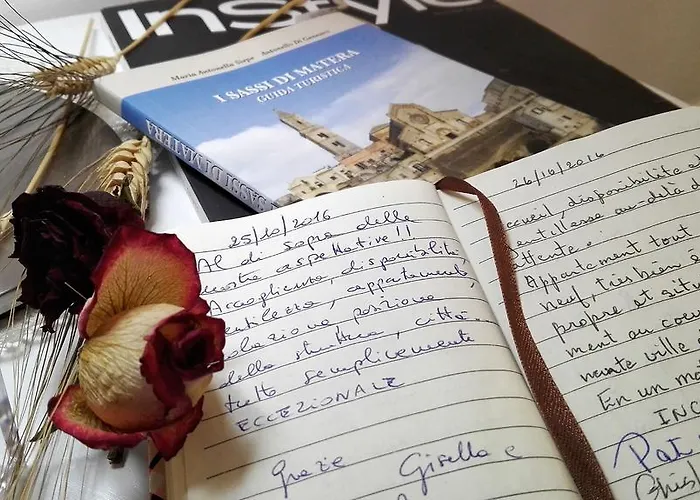 InStyle
Maria Antonella Sarpe Antonello Di Gennaro
I SASSI DI MATERA
GUIDA TURISTICA
SASSI DI MATERA
25/10/2016
Al di sopra delle
nostre aspettative!!
Accoglienza, disponibilità
gentilezza, appartamento
colazione, posizione,
della struttura, città..
tutto semplicemente
ECCEZIONALE
Grazie Gisella e
26/10/2016
ccueil, disponibilité e
entillesse au-delà d
attente.
Appartement tout
neuf, très bien é
propre et situ
ment au coeu
ville
En un mo
INC
Pat